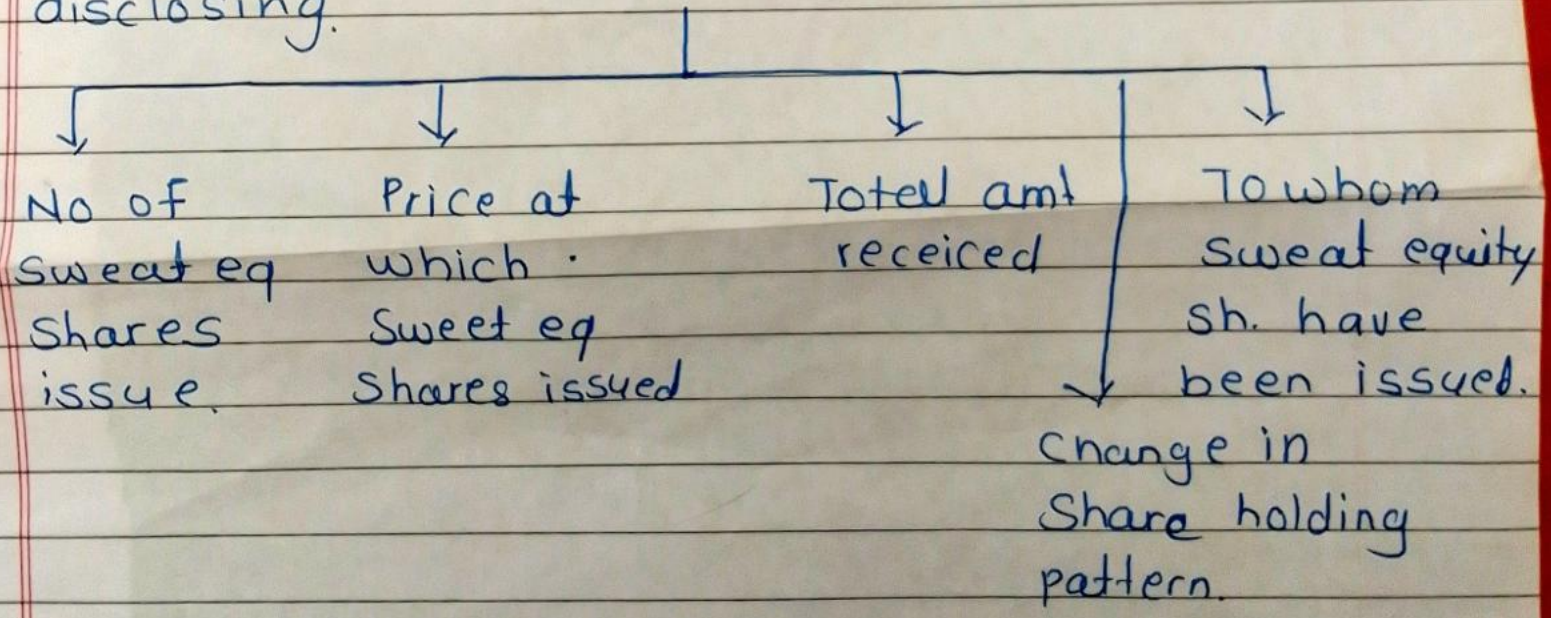 disclosing.
No of
sweat eq
shares
issue.
Price at
which .
Sweet eq
Shares issued
Totel amt
receiced
To whom
sweat equity
sh. have
been issued.
Change in
Share holding
pattern.